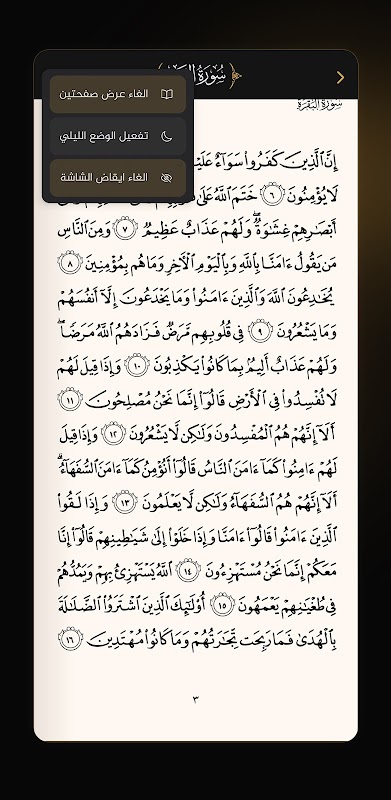 سُورَةُ
الغاء عرض صفحتين
تفعيل الوضع الليلي
الغاء ايقاض الشاشة
سُورَةُ البَقَرَةِ
إِنَّ ٱلَّذِينَ كَفَرُوا۟ سَوَآءٌ
لَا يُؤْمِنُونَ ٦ خَتَمَ ٱللَّهُ عَلَىٰ
أَبْصَٰرِهِمْ غِشَٰوَةٌۖ وَلَهُمْ عَذَابٌ عَظِيمٌ ٧ وَمِنَ ٱلنَّاسِ
مَن يَقُولُ ءَامَنَّا بِٱللَّهِ وَبِٱلْيَوْمِ ٱلْءَاخِرِ وَمَا هُم بِمُؤْمِنِينَ ٨
يُخَٰدِعُونَ ٱللَّهَ وَٱلَّذِينَ ءَامَنُوا۟ وَمَا يَخْدَعُونَ إِلَّآ أَنفُسَهُمْ
وَمَا يَشْعُرُونَ ٩ فِى قُلُوبِهِم مَّرَضٌ فَزَادَهُمُ ٱللَّهُ مَرَضًاۖ
وَلَهُمْ عَذَابٌ أَلِيمٌۢ بِمَا كَانُوا۟ يَكْذِبُونَ ١٠ وَإِذَا قِيلَ لَهُمْ
لَا تُفْسِدُوا۟ فِى ٱلْأَرْضِ قَالُوٓا۟ إِنَّمَا نَحْنُ مُصْلِحُونَ ١١
أَلَآ إِنَّهُمْ هُمُ ٱلْمُفْسِدُونَ وَلَٰكِن لَّا يَشْعُرُونَ ١٢ وَإِذَا قِيلَ
لَهُمْ ءَامِنُوا۟ كَمَآ ءَامَنَ ٱلنَّاسُ قَالُوٓا۟ أَنُؤْمِنُ كَمَآ ءَامَنَ ٱلسُّفَهَآءُۗ
أَلَآ إِنَّهُمْ هُمُ ٱلسُّفَهَآءُ وَلَٰكِن لَّا يَعْلَمُونَ ١٣ وَإِذَا لَقُوا۟
ٱلَّذِينَ ءَامَنُوا۟ قَالُوٓا۟ ءَامَنَّا وَإِذَا خَلَوْا۟ إِلَىٰ شَيَٰطِينِهِمْ قَالُوٓا۟ إِنَّا
مَعَكُمْ إِنَّمَا نَحْنُ مُسْتَهْزِءُونَ ١٤ ٱللَّهُ يَسْتَهْزِئُ بِهِمْ وَيَمُدُّهُمْ
فِى طُغْيَٰنِهِمْ يَعْمَهُونَ ١٥ أُو۟لَٰٓئِكَ ٱلَّذِينَ ٱشْتَرَوُا۟ ٱلضَّلَٰلَةَ
بِٱلْهُدَىٰ فَمَا رَبِحَت تِّجَٰرَتُهُمْ وَمَا كَانُوا۟ مُهْتَدِينَ ١٦
٣